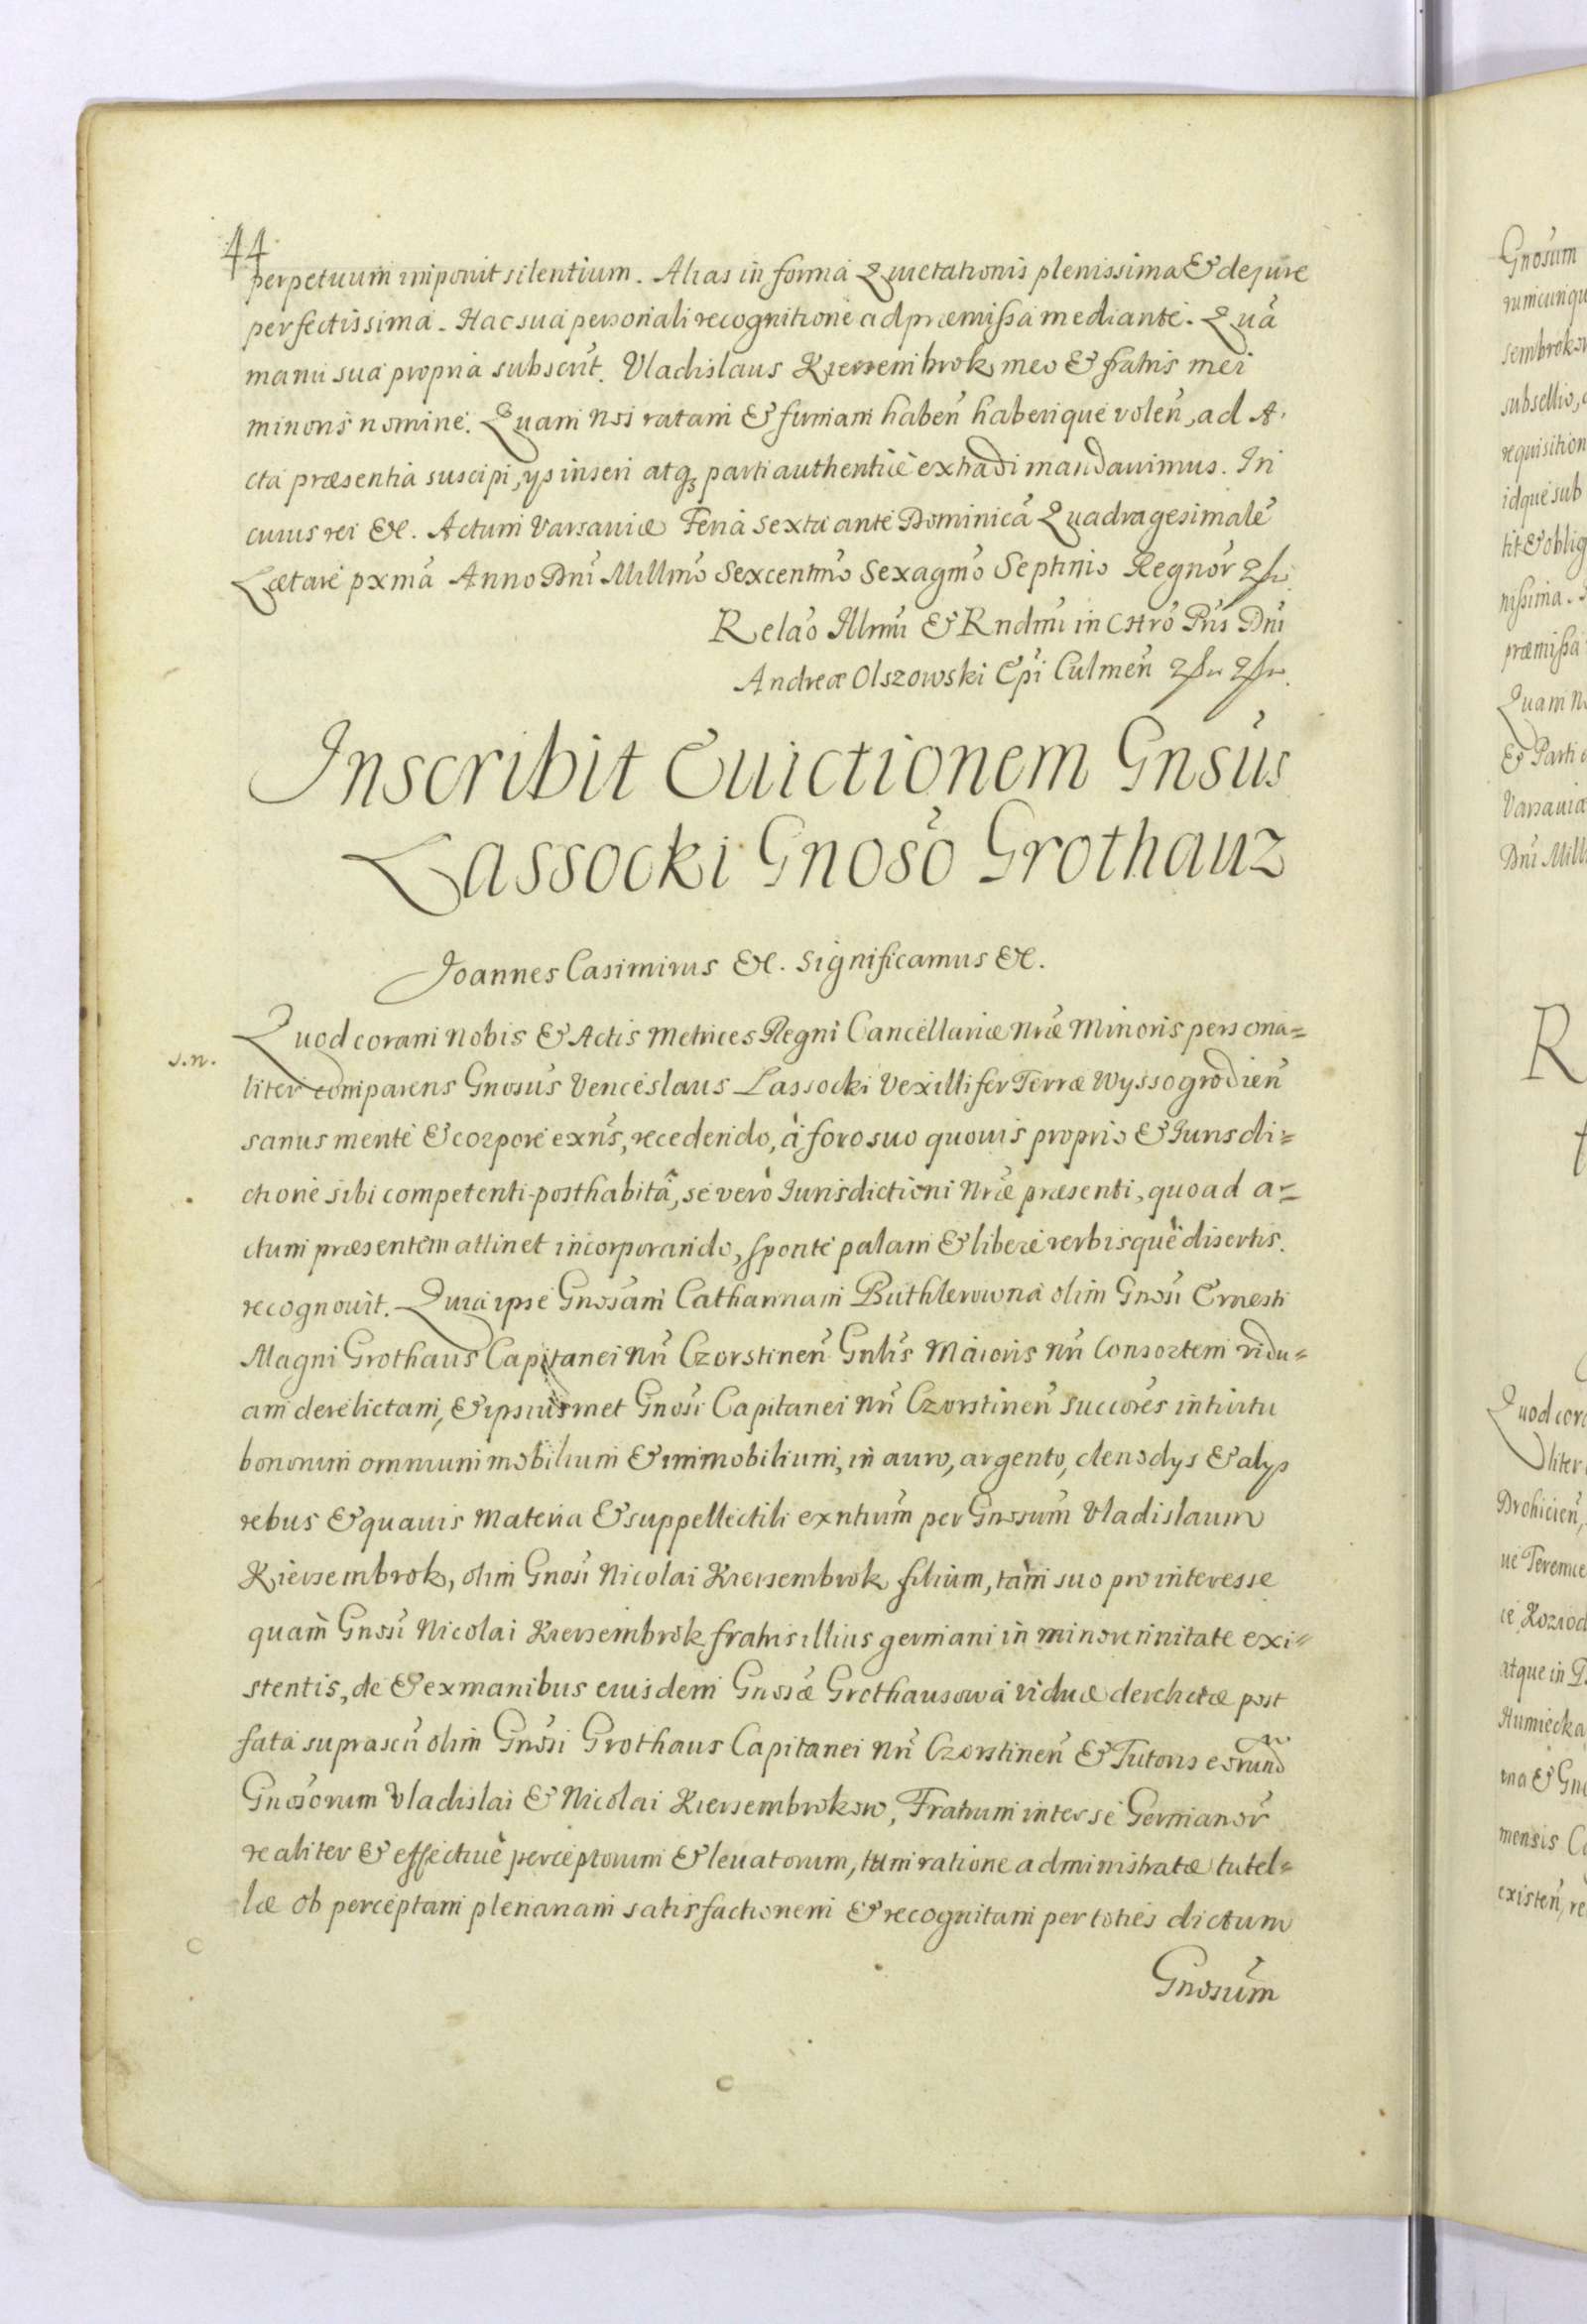 44
perpetuum imponit silentium. Alias in forma Quietationis plenissima & de jure
perfectissima. Hac sua personali recognitione ad præmissa mediante. Quã
manu sua propria subscrit. Vladislaus Kiersembrok meo & fratris mei
minoris nomine. Quam Nos ratam & firmam haben̄ haberique volen̄, ad A-
cta præsentia suscipi, ys inseri atqꝫ parti authenticè extradi mandauimus. In
cuius rei &c. Actum Varsauiæ Feria sexta ante Dominicã Quadragesimalẽ
Lætare pxmã Anno Dni Millmõ Sexcentmõ Sexagmõ Septimo Regnor̃
Relaõ Illmi & Rndmi in CHrõ Pris Dni
Andreæ Olszowski Epi Culmen̄
Inscribit Euictionem Gnsus
Lassocki Gnosõ Grothauz
Joannes Casimirus &c. Significamus &c.
Quod coram Nobis & Actis Metrices Regni Cancellariæ Nræ Minoris persona=
s.n.
liter comparens Gnosus Venceslaus Lassocki Vexillifer Terræ Wyssogrodien̄
sanus mente & corpore exns, recedendo, à foro suo quouis proprio & Jurisdi=
ctione sibi competenti posthabitâ, se verò Jurisdictioni Nræ præsenti, quoad a=
ctum præsentem attinet incorporando, sponte palam & libere verbisquè disertis.
recognouit. Quia ipse Gnosam Catharinam Buthlerowna olim Gnosi Ernesti
Magni Grothaus Capitanei Nri Czorstinen̄ Gnlis Maioris Nri Consortem vidu=
am derelictam, & ipsiusmet Gnosi Capitanei Nri Czorstinen̄ succores intuitu
bonorum omnium mobilium & immobilium, in auro, argento, clenodys & alys
rebus & quauis materia & suppellectili exntium per Gnosum Vladislaum
Kiersembrok, olim Gnosi Nicolai Kiersembrok filium, tàm suo pro interesse
quam Gnosi Nicolai Kiersembrok fratris illius germani in minorennitate exi=
stentis, de & ex manibus eiusdem Gnosæ Grothausowa viduæ derelictæ post
fata suprascri olim Gnosi Grothaus Capitanei Nri Czorstinen̄ & Tutoris eorund
Gnosorum Vladislai & Nicolai Kiersembrokow, Fratrum inter se Germanor̃
realiter & effectiuè perceptorum & leuatorum, tum ratione administratæ tutel=
læ ob perceptam plenariam satisfactionem & recognitam per toties dictum
Gnosum